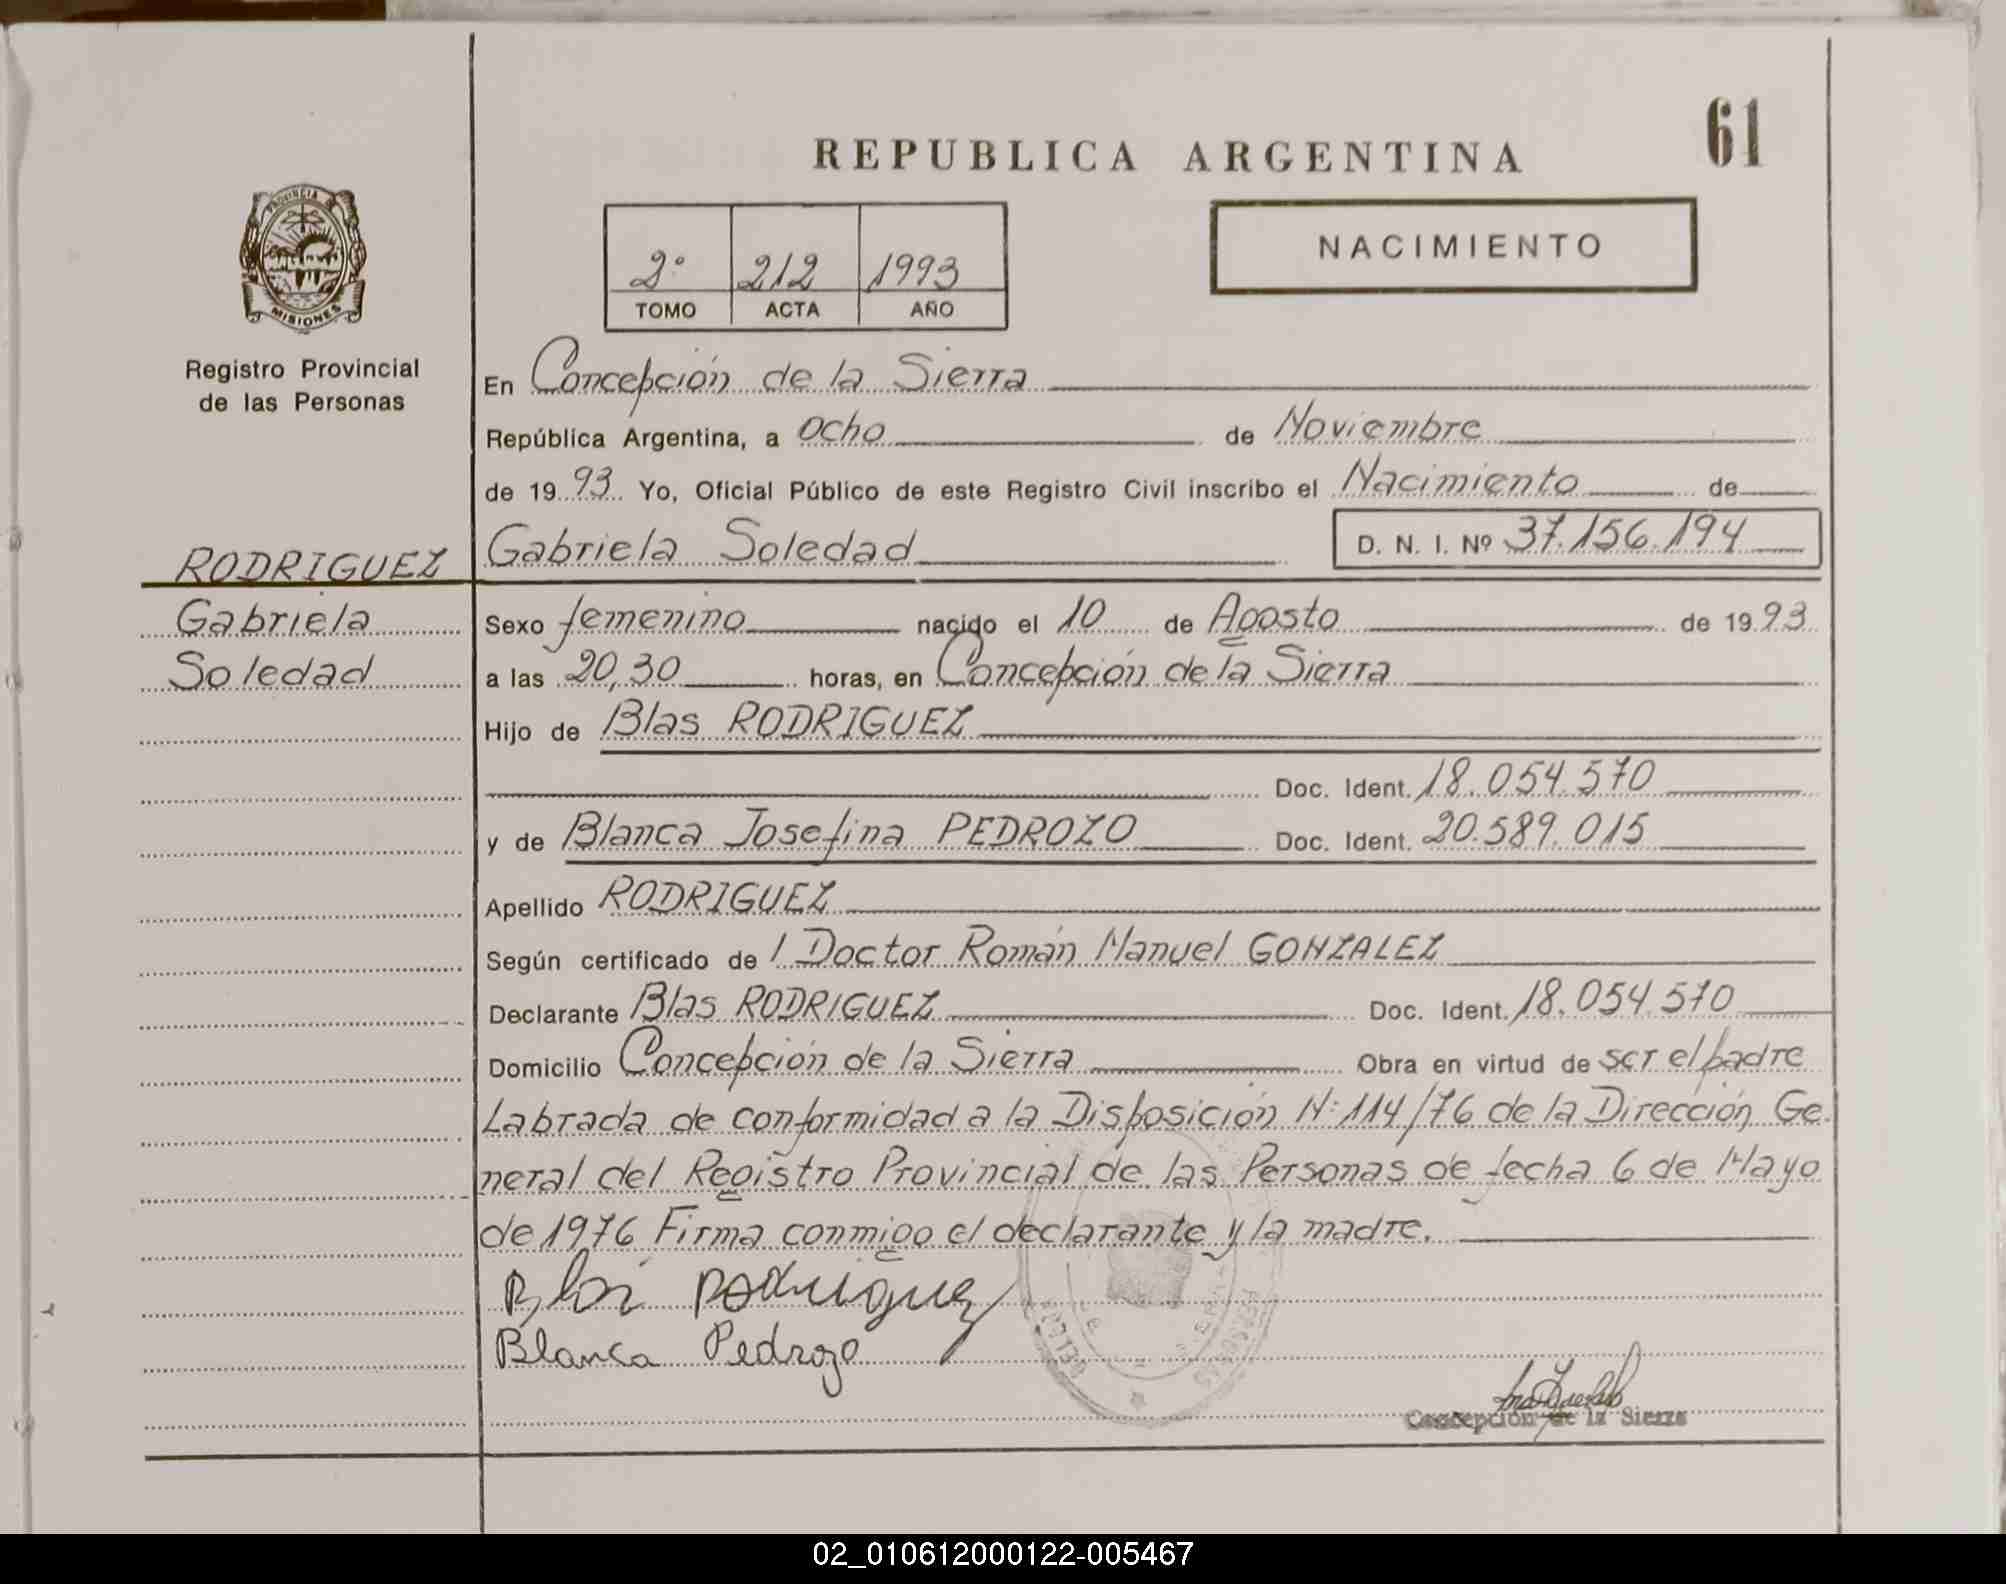 61
REPUBLICA ARGENTINA
NACIMIENTO
2º 212 1993
TOMO ACTA AÑO
PROVINCIA DE
MISIONES
Registro Provincial
de las Personas
En Concepción de la Sierra
República Argentina, a ocho de Noviembre
de 19 93 Yo, Oficial Público de este Registro Civil inscribo el Nacimiento de
RODRIGUEZ Gabriela Soledad D. N. I. Nº 37.156.194
Gabriela Sexo femenino nacido el 10 de Agosto de 19 93
Soledad a las 20,30 horas, en Concepción de la Sierra
Hijo de Blas RODRIGUEZ
Doc. Ident. 18.054.570
y de Blanca Josefina PEDROZO Doc. Ident. 20.589.015
Apellido RODRIGUEZ
Según certificado de l Doctor Román Manuel GONZALEZ
Declarante Blas RODRIGUEZ Doc. Ident. 18.054.570
Domicilio Concepción de la Sierra Obra en virtud de ser el padre
Labrada de conformidad a la Disposición N: 114/76 de la Dirección Ge.
neral del Registro Provincial de las Personas de fecha 6 de Mayo
de 1976 Firma conmigo el declarante y la madre.
Blas Rodriguez
Blanca Pedrozo
Concepción de la Sierra
02_010612000122-005467